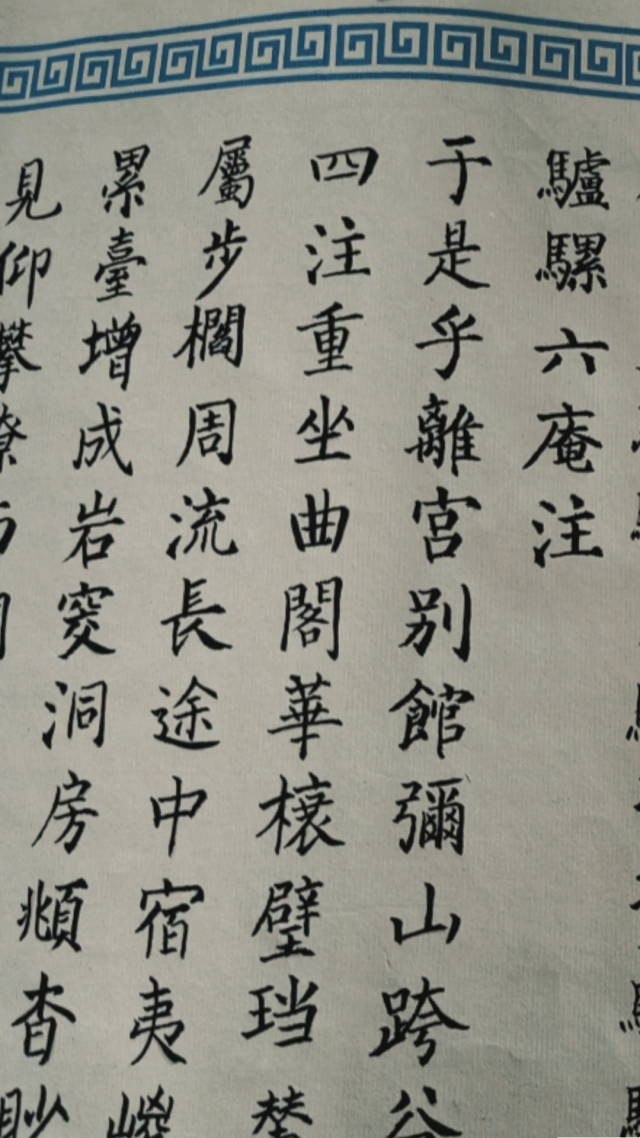 驢騾六庵注
于是乎離宮别館彌山跨谷
四注重坐曲閣華榱璧珰輦
屬步櫩周流長途中宿夷嵕
累臺增成岩窔洞房頫杳眇
見仰攀